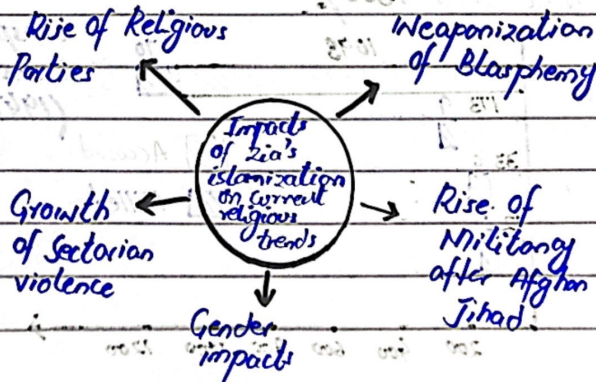 Rise of Religious
Parties
Weaponization
of Blasphemy
Impacts
of Zia's
islamization
on current
religious
trends
Growth
of Sectarian
violence
Rise of
Militancy
after Afghan
Jihad
Gender
impacts